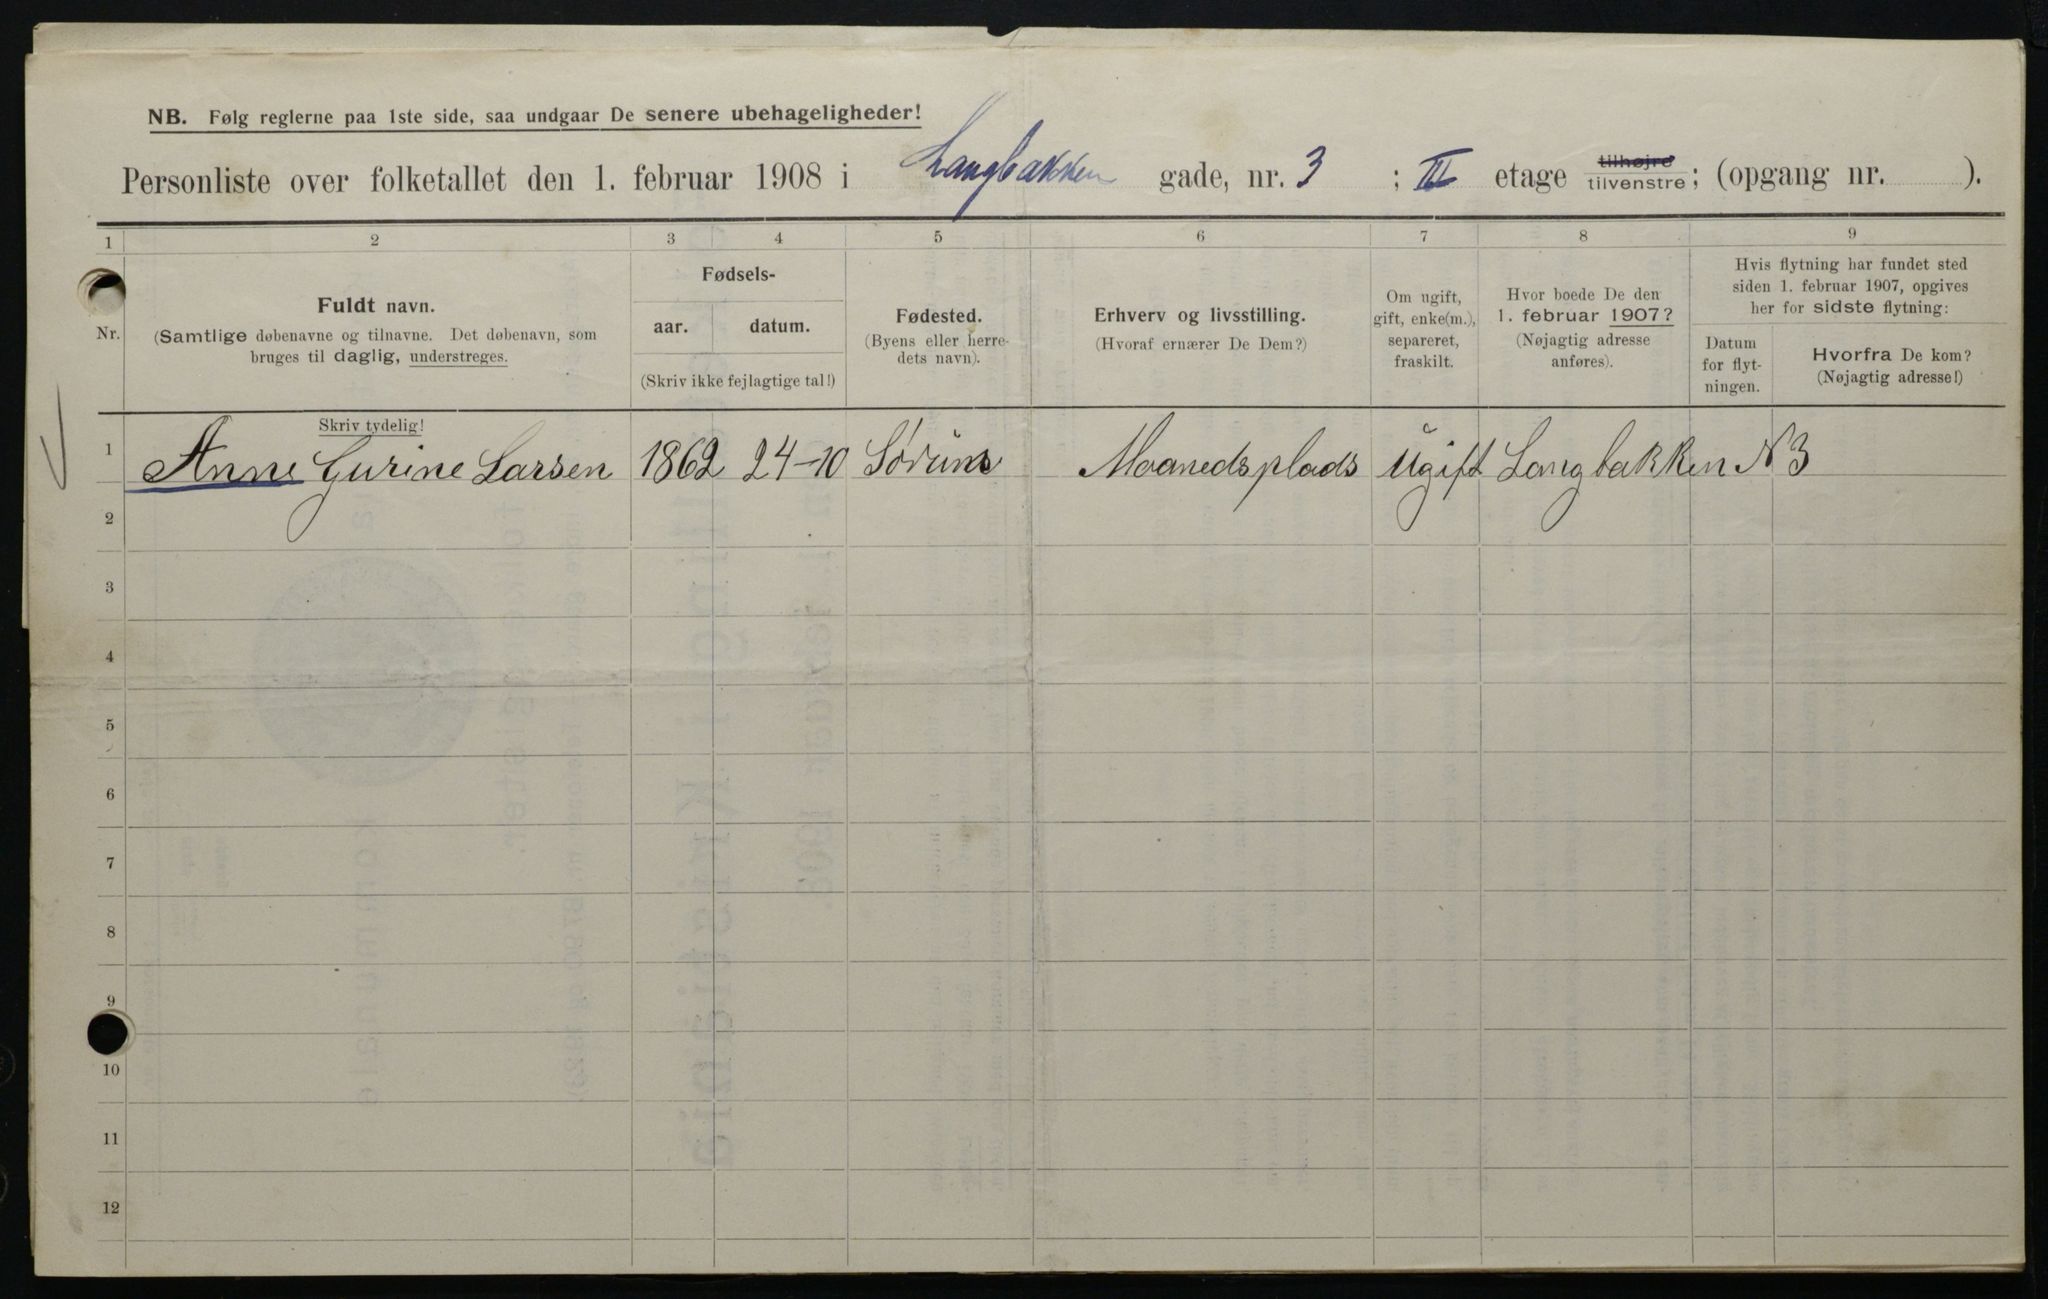 NB. Følg reglerne paa 1ste side, saa undgaar De senere ubehageligheder!
Personliste over folketallet den 1. februar 1908 i Langbakken gade, nr. 3 ; III etage tilhøjre tilvenstre; (opgang nr. ).
1 2 3 4 5 6 7 8 9
Nr.
Fuldt navn.
(Samtlige døbenavne og tilnavne. Det døbenavn, som
bruges til daglig, understreges.
Fødsels-
aar. datum.
(Skriv ikke fejlagtige tal!)
Fødested.
(Byens eller herre-
dets navn).
Erhverv og livsstilling.
(Hvoraf ernærer De Dem?)
Om ugift,
gift, enke(m.),
separeret,
fraskilt.
Hvor boede De den
1. februar 1907?
(Nøjagtig adresse
anføres).
Hvis flytning har fundet sted
siden 1. februar 1907, opgives
her for sidste flytning:
Datum
for flyt-
ningen.
Hvorfra De kom?
(Nøjagtig adresse!)
Skriv tydelig!
1 Anne Gurine Larsen 1862 24-10 Sørum Maanedsplads Ugift Langbakken N 3
2
3
4
5
6
7
8
9
10
11
12